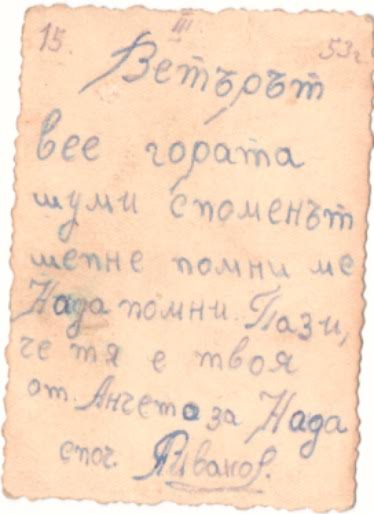 15. III 53г
Ветърът
вее гората
шуми споменът
шепне помни ме
Нада помни. Пази,
че тя е твоя
от. Анчето за Нада
споч. Иванов.